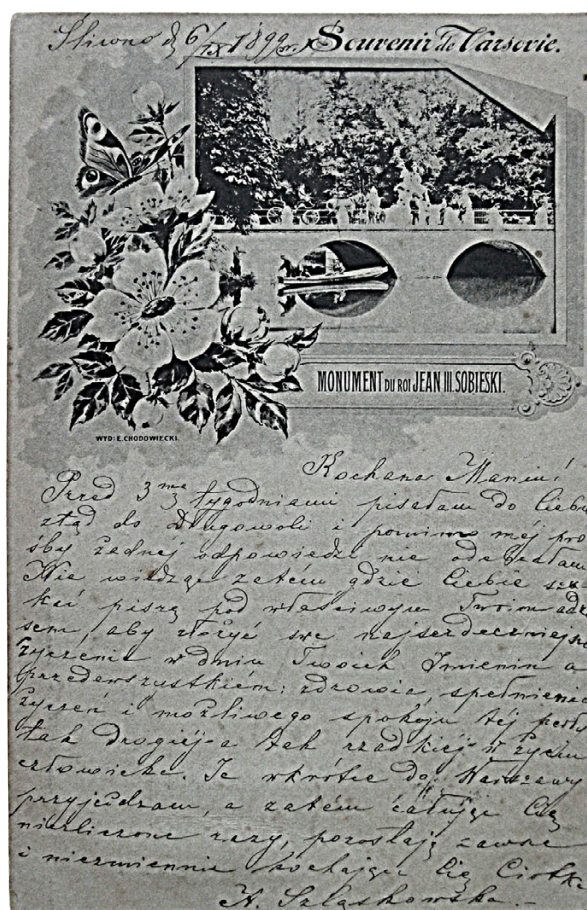 Sliwno d 6/IX 1899 r. Souvenir de Varsovie.
MONUMENT DU ROI JEAN III. SOBIESKI.
WYD: E. CHODOWIECKI.
Kochana Maniu!
Przed 3ma tygodniami pisałam do Ciebie
ztąd do Długowoli i pomimo méj pro
śby żadnej odpowiedzi nie
Nie wiedząc zatem gdzie Ciebie szu
kać piszę pod właściwym Twoim adre
sem, aby złożyć swe najserdeczniejsze
życzenia w dniu Twoich Imienin a
przedewszystkiém: zdrowia, spełnienia
życzeń i możliwego spokoju téj perły
tak drogiéj a tak rzadkiéj w życiu
człowieka. Ja wkrótce do Warszawy
przyjeżdżam, a zatém całując Cię
niezliczone razy, pozostaję zawsze
i niezmiennie kochająca Cię Ciotka
Szlaskowska.